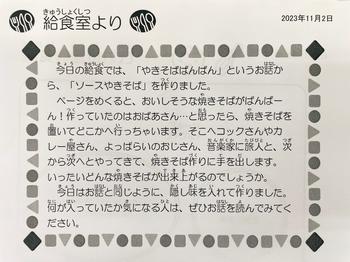 給食室より
2023年11月2日
今日の給食では、「やきそばばんばん」というお話か
ら、「ソースやきそば」を作りました。
ページをめくると、おいしそうな焼きそばがばんばー
ん!作っていたのはおばあさん…と思ったら、焼きそばを
置いてどこかへ行っちゃいます。そこへコックさんやカ
レー屋さん、よっぱらいのおじさん、音楽家に旅人と、次
から次へとやってきて、焼きそば作りに手を出します。
いったいどんな焼きそばが出来上がるのでしょうか。
今日はお話と同じように、隠し味を入れて作りました。
何が入っていたか気になる人は、ぜひお話を読んでみてく
ださい。